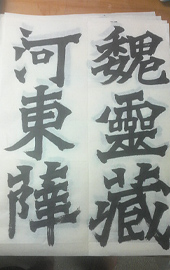 魏靈藏
河東薛